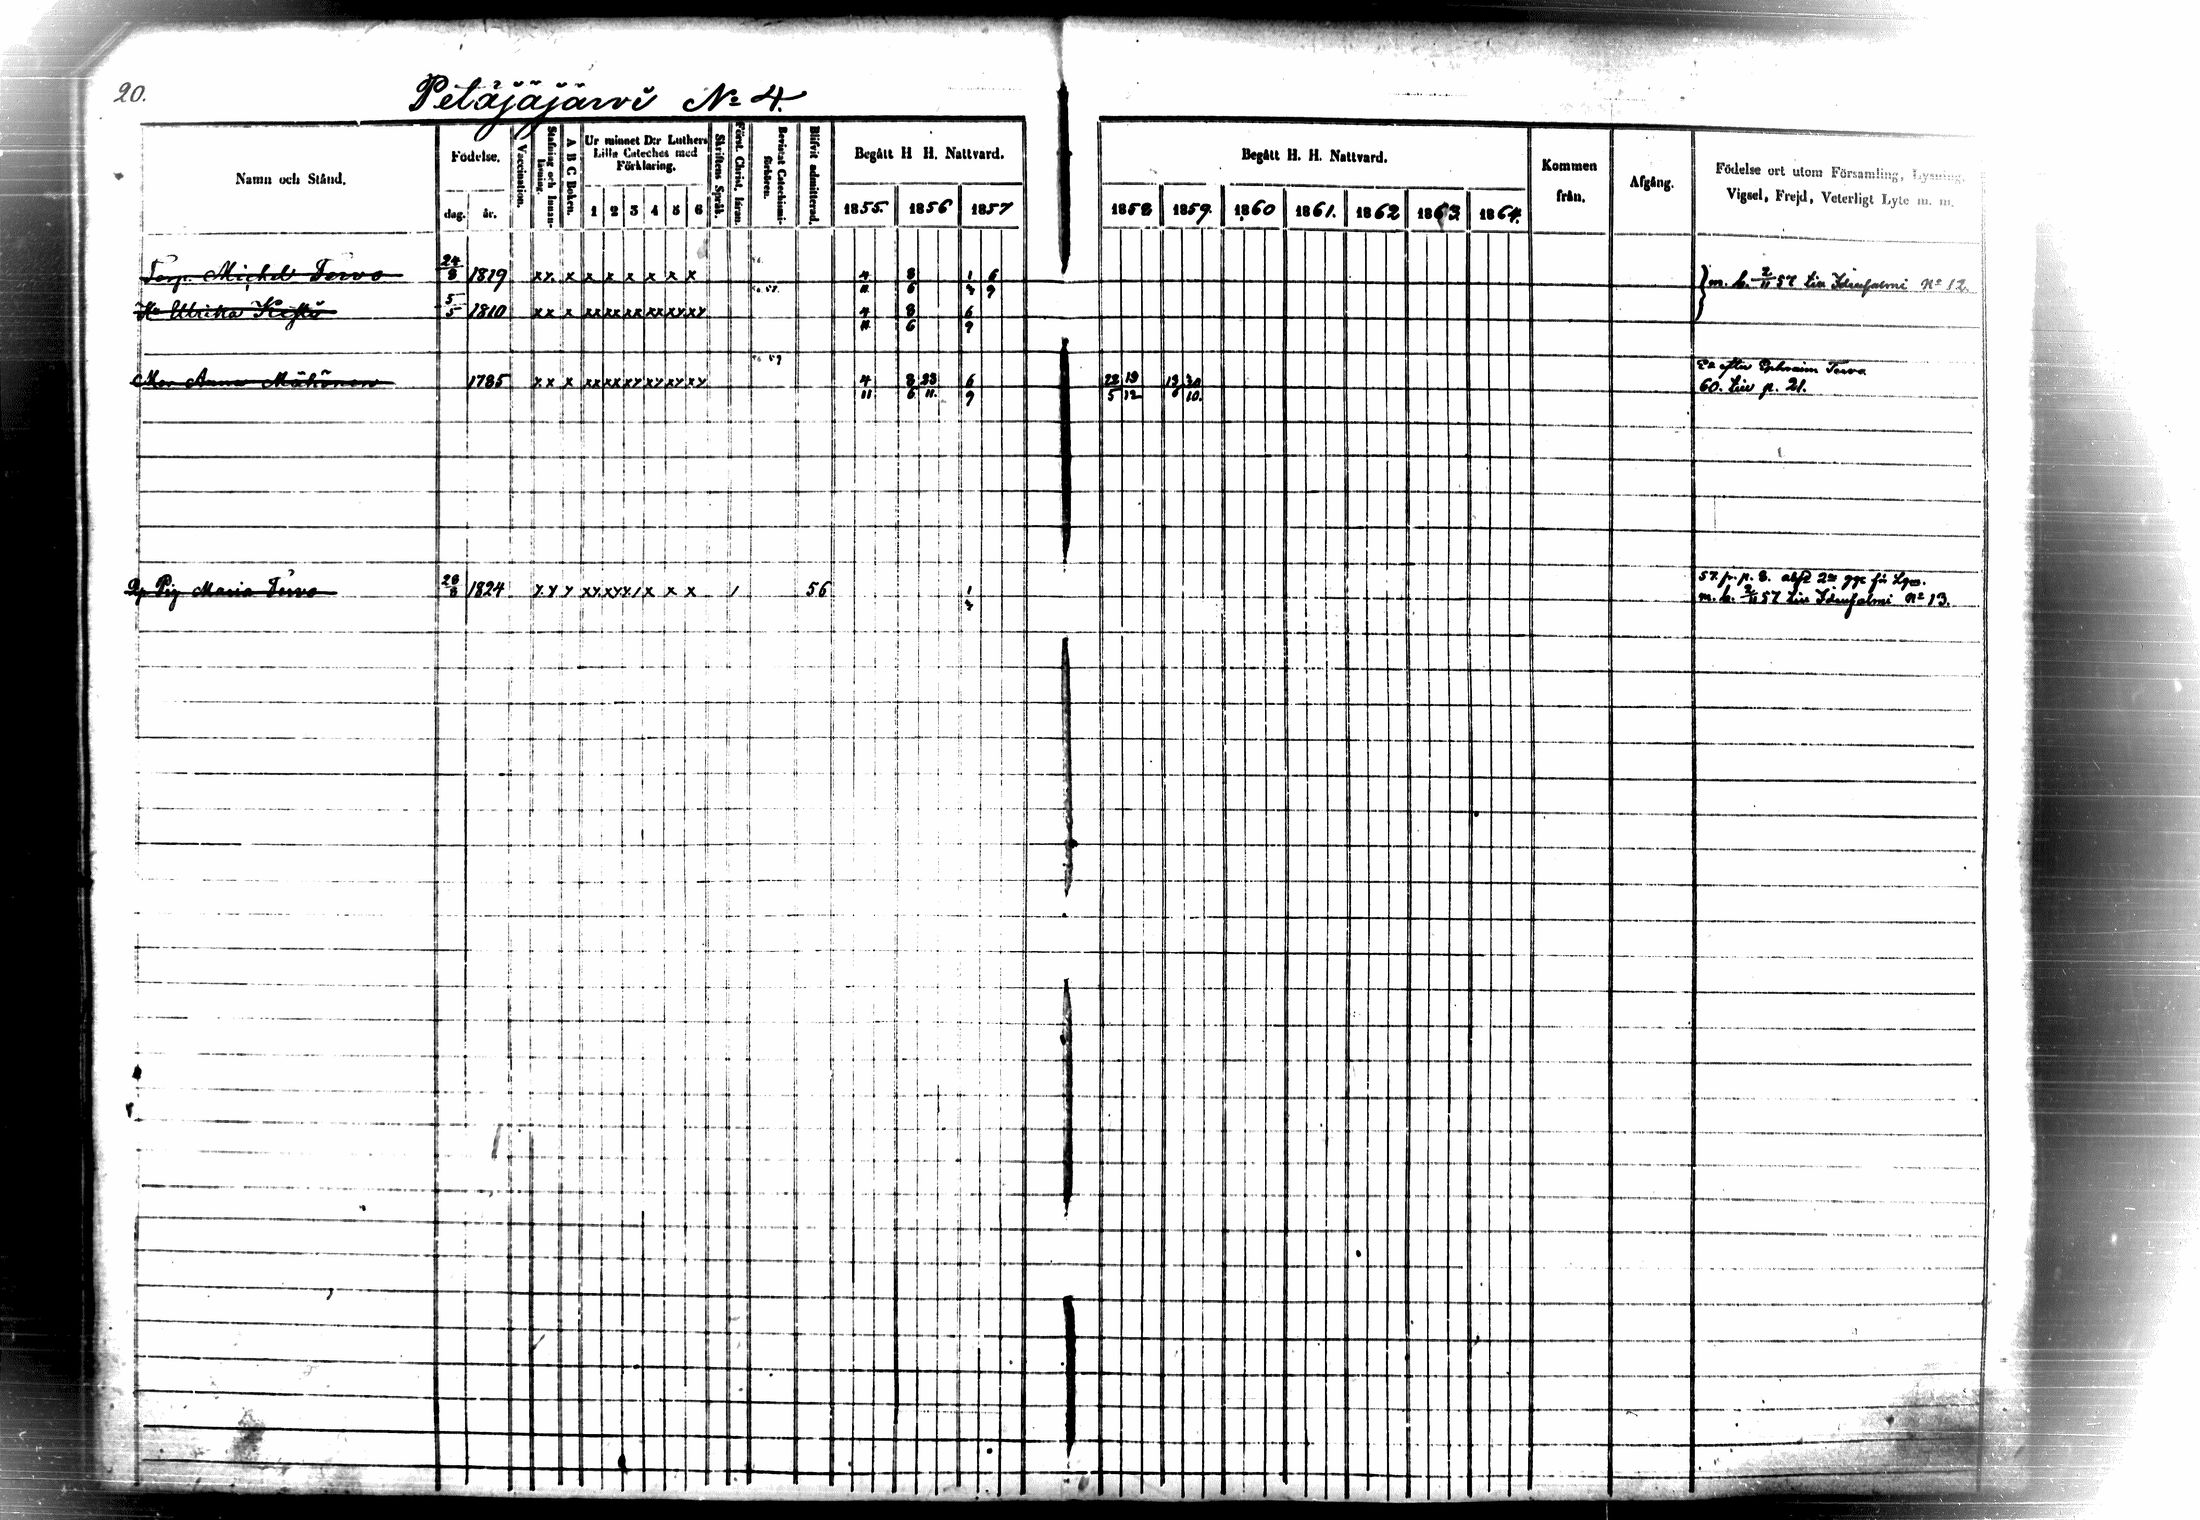 20.
Petäjäjärvi No 4.
Namn och Stånd.
Födelse.
dag. år.
Vaccination.
Stafning och Innanläsning.
A B C Boken.
Ur minnet D:r Luthers Lilla Cateches med Förklaring.
1 2 3 4 5 6
Skriftens Språk.
Först. Christ. läran.
Bevistat Catechismiförhören.
Blifvit admitterad.
Begått H H. Nattvard.
1855. 1856 1857
Begått H. H. Nattvard.
1858 1859. 1860 1861. 1862 1863. 1864.
Kommen från.
Afgång.
Födelse ort utom Församling, Lysning,
Vigsel, Frejd, Veterligt Lyte m. m.
Torp. Michel Tervo 24/8 1819 x x x x x x x x x 4/11 8/6 1/7 6/9 m. b. 2/11 57 till Idensalmi No 12.
Hu Ulrika 5/5 1810 x x x xx xx xx xx xx xx 4/11 8/6 6/9
56 59 Ea efter Ephraim Tervo
Mor Anna 1785 x x x xx xx xx xx xx xx 4/11 8/6 23/11 6/9 22/5 19/12 60. till p. 21.
Pig Maria Tervo 26/8 1824 x x x x x x 1 56 1/7
m. b. 2/11 57 till Idensalmi No 13.